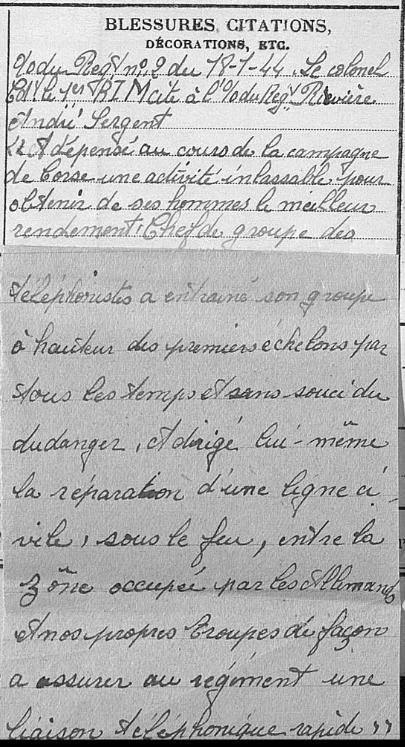 BLESSURES, CITATIONS,
DÉCORATIONS, ETC.
Odu Regt n°. 2 du 18-1-44. Le colonel
Cdt le 1er RTM cite à l'O du Regt. Rivière
André Sergent
"A dépensé au cours de la campagne
de Corse une activité inlassable pour
obtenir de ses hommes le meilleur
rendement. Chef de groupe des
téléphonistes a entrainé son groupe
à hauteur des premiers échelons par
tous les temps et sans souci du
du danger, A dirigé lui-même
la réparation d'une ligne ci-
vile, sous le feu, entre la
zône occupée par les Allemands
et nos propres troupes de façon
a assurer au régiment une
liaison téléphonique rapide "